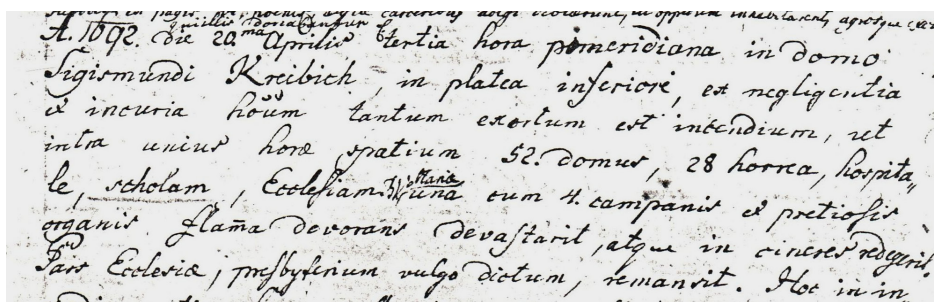 in pagis
A. 1692. die 20.ma Aprilis tertia hora pomeridiana in domo
Sigismundi Kreibich, in platea inferiore, ex negligentia
& incuria hoûm tantum exortum est incendium, ut
intra unius horæ spatium 52. domus, 28 horrea, hospita„
le, scholam, Ecclesiam una cum 4. campanis & pretiosis
organis flam̄a devorans devastarit, atque in cineres redegerit.
Pars Ecclesiæ, presbyterium vulgo dictum, remansit. Hoc in in